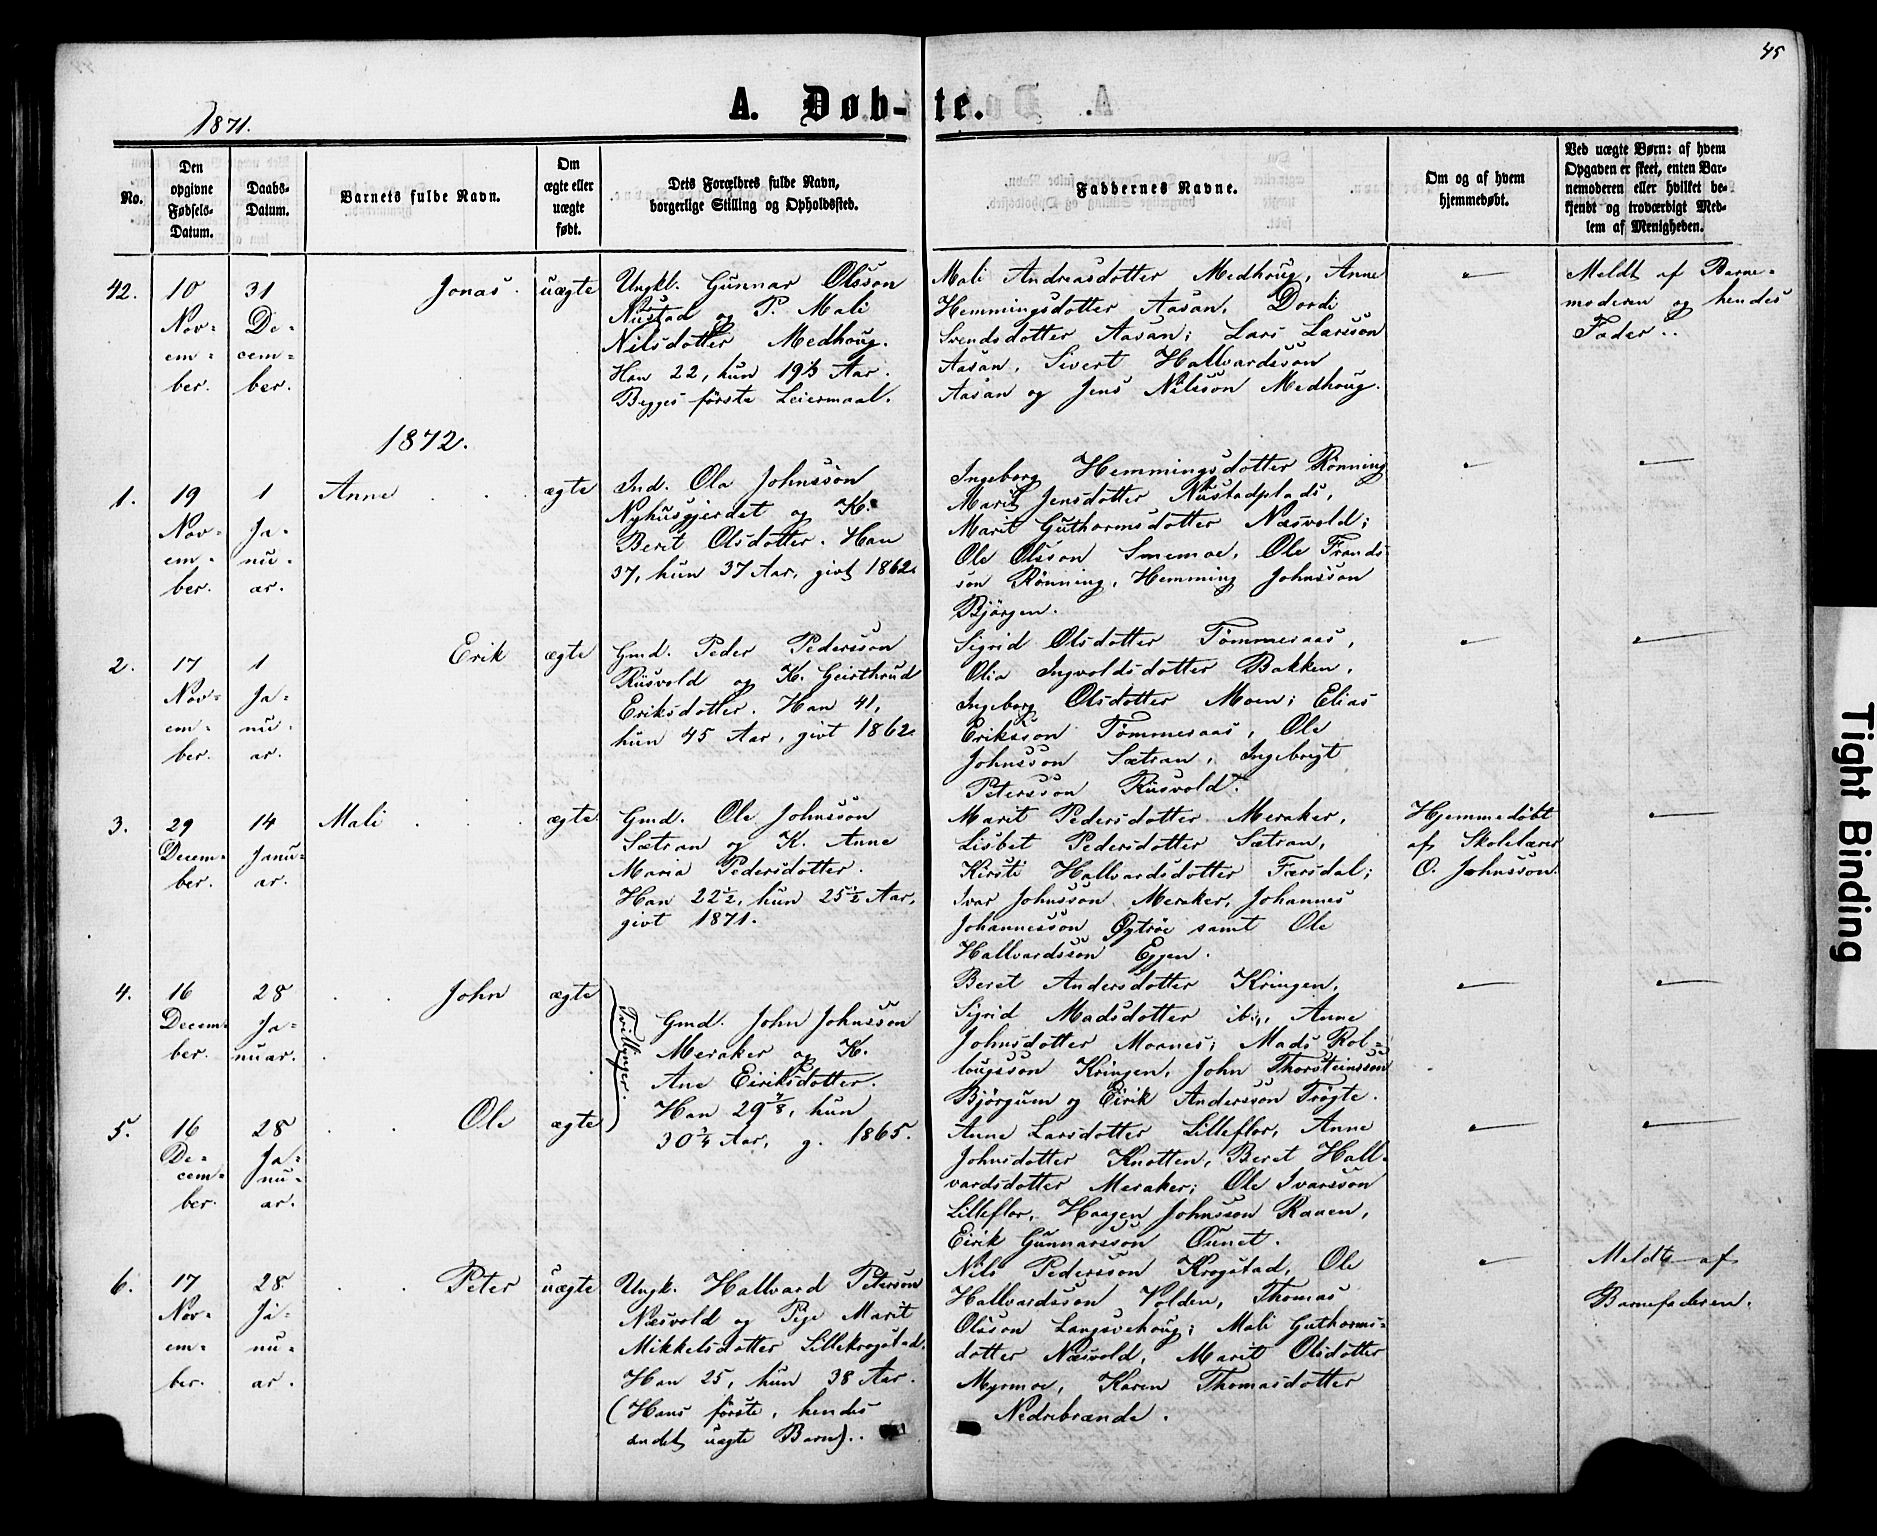 45
1871.
A. Døb-te.
No.
Den
opgivne
Fødsels-
Datum.
Daabs-
Datum.
Barnets fulde Navn.
Om
ægte eller
uægte
født.
Dets Forældres fulde Navn,
borgerlige Stilling og Opholdssted.
Faddernes Navne.
Om og af hvem
hjemmedøbt.
Ved uægte Børn: af hvem
Opgaven er skeet, enten Bar-
nemoderen eller hvilket be-
kjendt og troværdigt Med-
lem af Menigheden.
42.
10
Nov-
em-
ber.
31
De-
cem-
ber.
Jonas.
uægte
Ungkl. Gunnar Olsson
Nustad og P. Mali
Nilsdotter Medhoug.
Han 22, hun 19⅓ Aar.
Begges første Leiermaal.
Mali Andreasdotter Medhoug, Anne
Hemmingsdotter Aasan, Dordi
Svendsdotter Aasan; Lars Larsson
Aasan, Sivert Hallvardsson
Aasan og Jens Nilsson Medhoug.
Meldt af Barne-
moderen og hendes
Fader..
1872.
1.
19
Nov-
em-
ber.
1
Ja-
nu-
ar.
Anne
ægte
Ind. Ola Johnsson
Nyhusgjerdet og K.
Berit Olsdotter. Han
37, hun 37 Aar, givt 1862.
Ingeborg Hemmingsdotter Rønning
Marit Jensdotter Nustadplads,
Marit Guthormsdotter Næsvold;
Ole Olsson Smemoe, Ole Frands-
son Rønning, Hemming Johnsson
Bjørgen.
2.
17
Nov-
em-
ber.
1
Ja-
nu-
ar.
Erik
ægte
Gmd. Peder Pedersson
Rusvold og K. Geirthrud
Eriksdotter. Han 41,
hun 45 Aar, givt 1862.
Sigrid Olsdotter Tømmeraas,
Olia Ingvoldsdotter Bakken,
Ingeborg Olsdotter Moen; Elias
Eriksson Tømmeraas, Ole
Johnsson Sætran, Ingebrigt
Petersson Rusvold.
3.
29
Decem-
ber.
14
Janu-
ar.
Mali
ægte
Gmd. Ole Johnsson
Sætran og K. Anne
Maria Pedersdotter.
Han 22½, hun 25½ Aar,
givt 1871.
Marit Pedersdotter Meraker,
Lisbet Pedersdotter Sætran,
Kirsti Hallvardsdotter Færsdal;
Ivar Johnsson Meraker, Johannes
Johannesson Øytrøe samt Ole
Hallvardsson Eggen.
Hjemmedøbt
af Skolelærer
O. Johnsson.
4.
16
Decem-
ber.
28
Ja-
nuar.
John
ægte
Tvillinger.
Gmd. John Johnsson
Meraker og K.
Ane Eiriksdotter.
Han 29⅞, hun
30¾ Aar, g. 1865.
Beret Andersdotter Kringen,
Sigrid Madsdotter ib., Anne
Johnsdotter Moanes; Mads Rol-
lougsson Kringen, John Thorsteinsson
Bjørguen og Eirik Andersson Trøgte.
5.
16
De-
cem-
ber.
28
Ja-
nu-
ar.
Ole
ægte
Anne Larsdotter Lilleflor, Anne
Johnsdotter Knotten, Beret Hall-
vardsdotter Meraker; Ole Ivarsson
Lilleflor, Haagen Johnsson Raaen,
Eirik Gunnarsson Ounet.
6.
17
Nov-
em-
ber.
28
Ja-
nu-
ar.
Peter
uægte
Ungk. Hallvard Peterson
Næsvold og Pige Marit
Mikkelsdotter Lillekrogstad.
Han 25, hun 38 Aar.
(Hans første, hendes
andet uægte Barn)..
Nils Pedersson Krogstad, Ole
Hallvardsson Volden, Thomas
Olsson Langsvehoug; Mali Guthorms-
dotter Næsvold, Marit Olsdotter
Myrmoe, Karen Thomasdotter
Nedrebrænde.
Meldt af
Barnefaderen.
Tight Binding